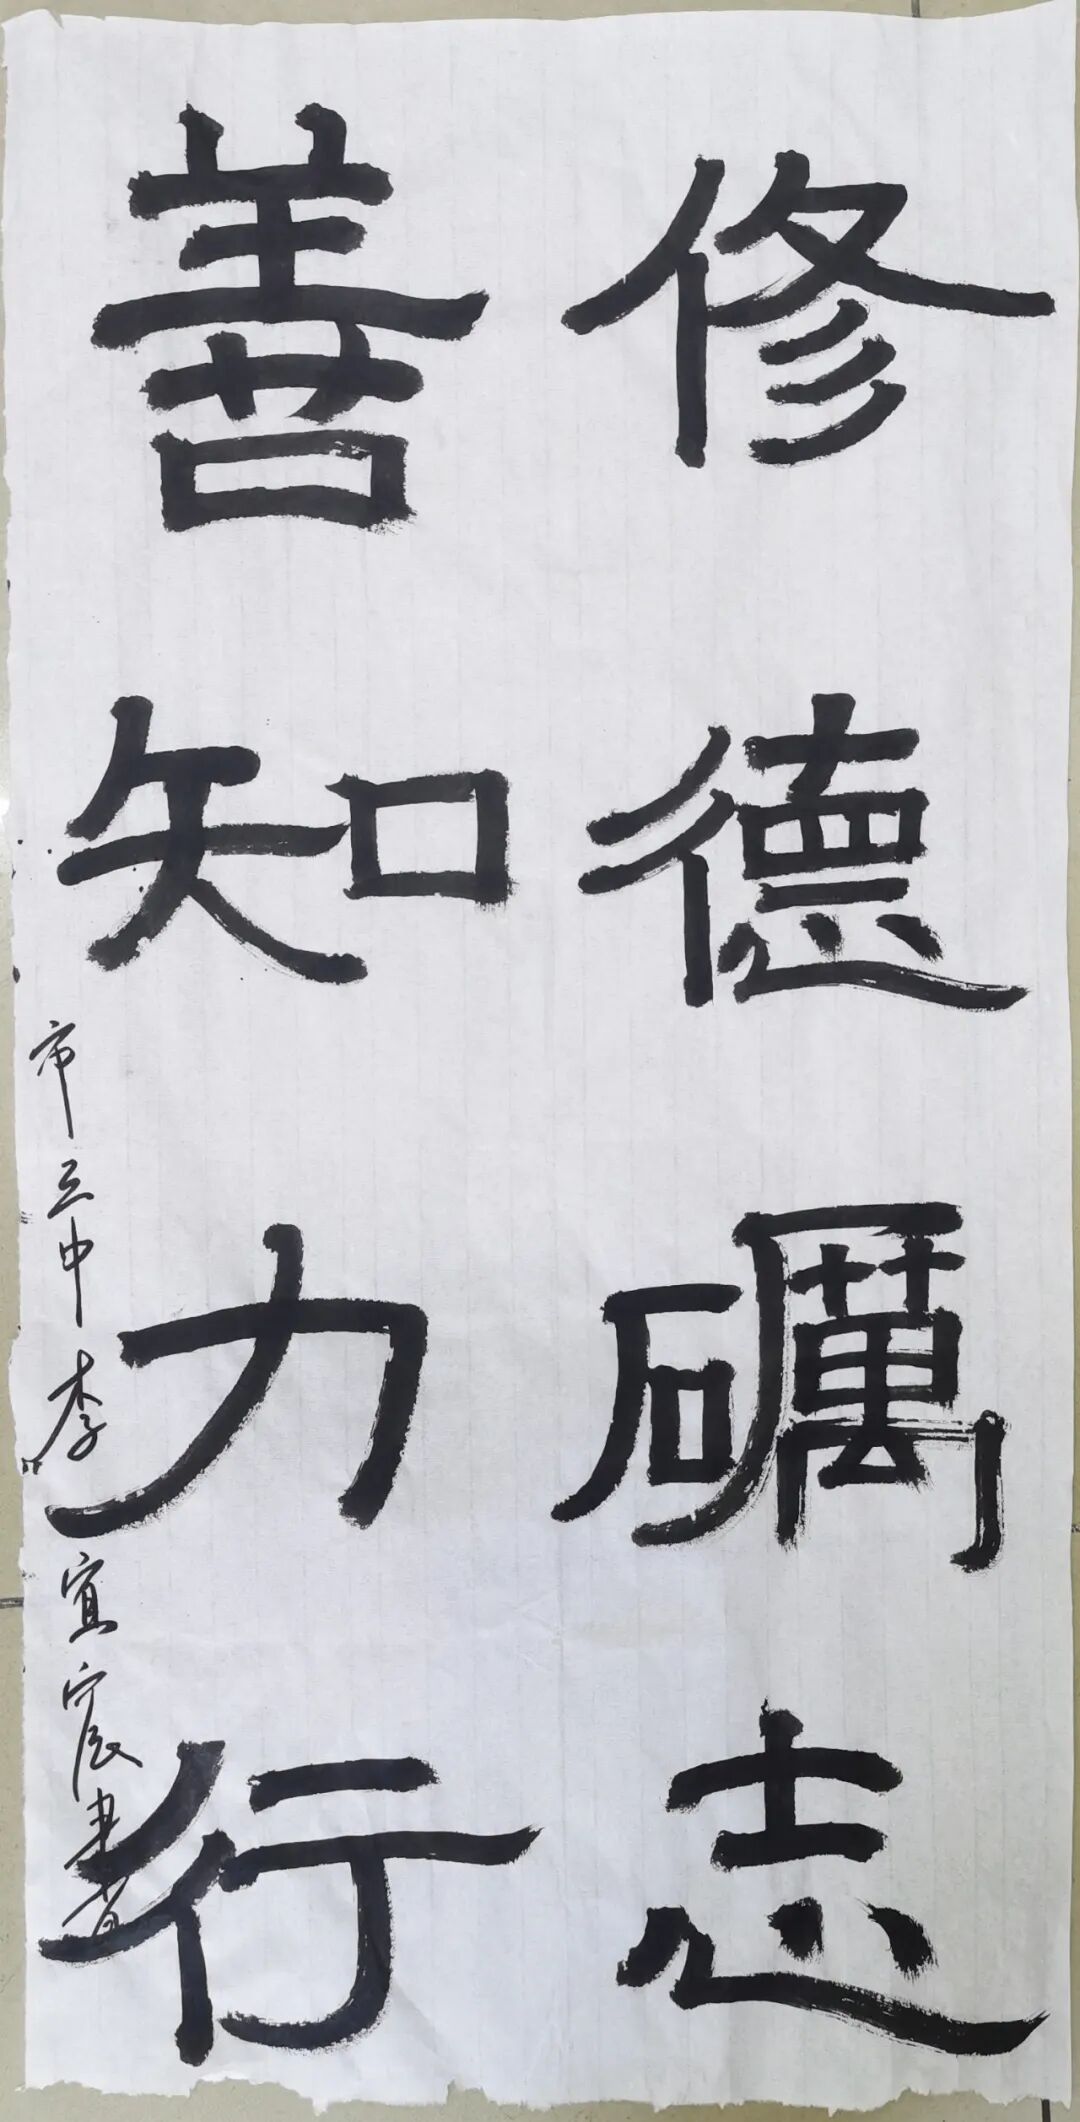 修德礪志
善知力行
市三中李宜宸書